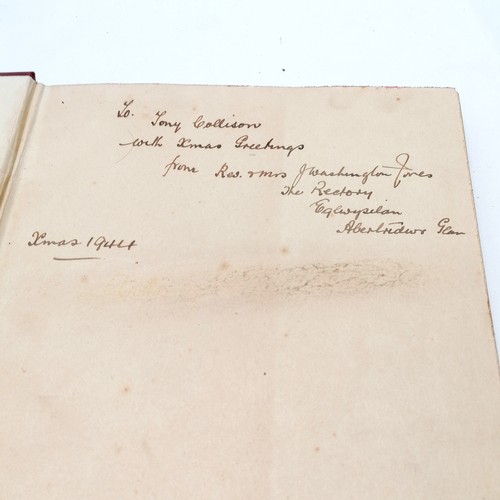 To. Tony Collison
with Xmas Greetings
from Rev. & Mrs J Washington Jones
The Rectory
Eglwysilan
Abertridwr Glam
Xmas 1944